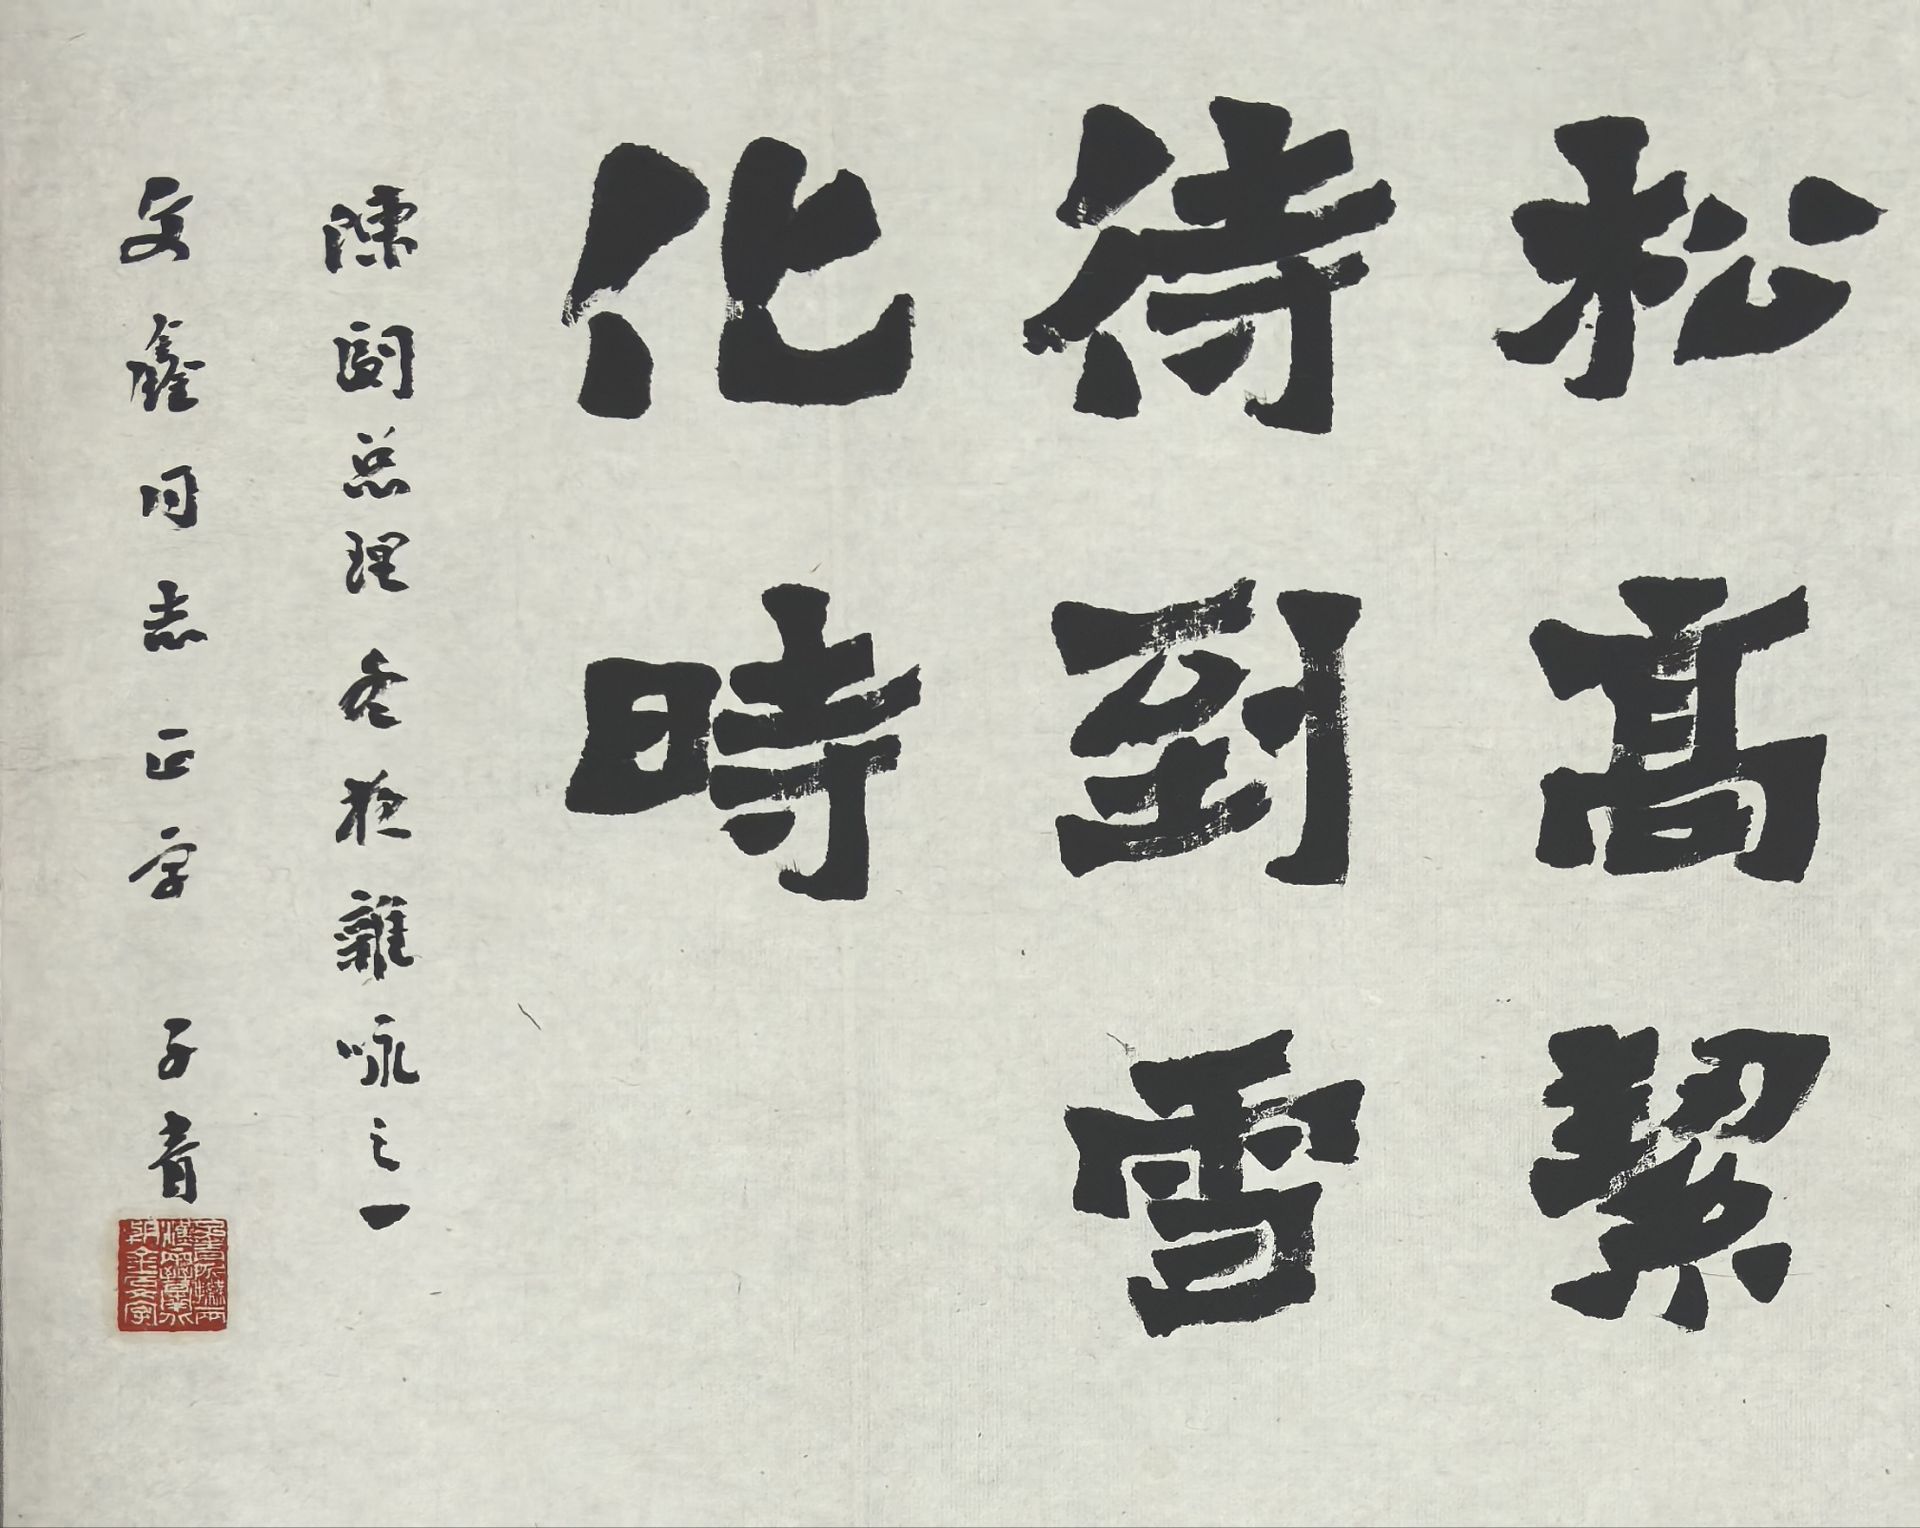 松高絜
待到雪
化時
陳副总理冬夜雜咏之一
文鑫同志正字 子青